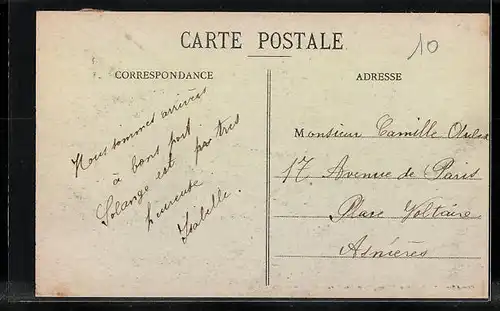 CARTE POSTALE
10
CORRESPONDANCE
ADRESSE
Nous sommes arrivées
à bons port
Solange est pas très
heureuse
Isabelle.
Monsieur Camille
17 Avenue de Paris
Place Voltaire
Asnières